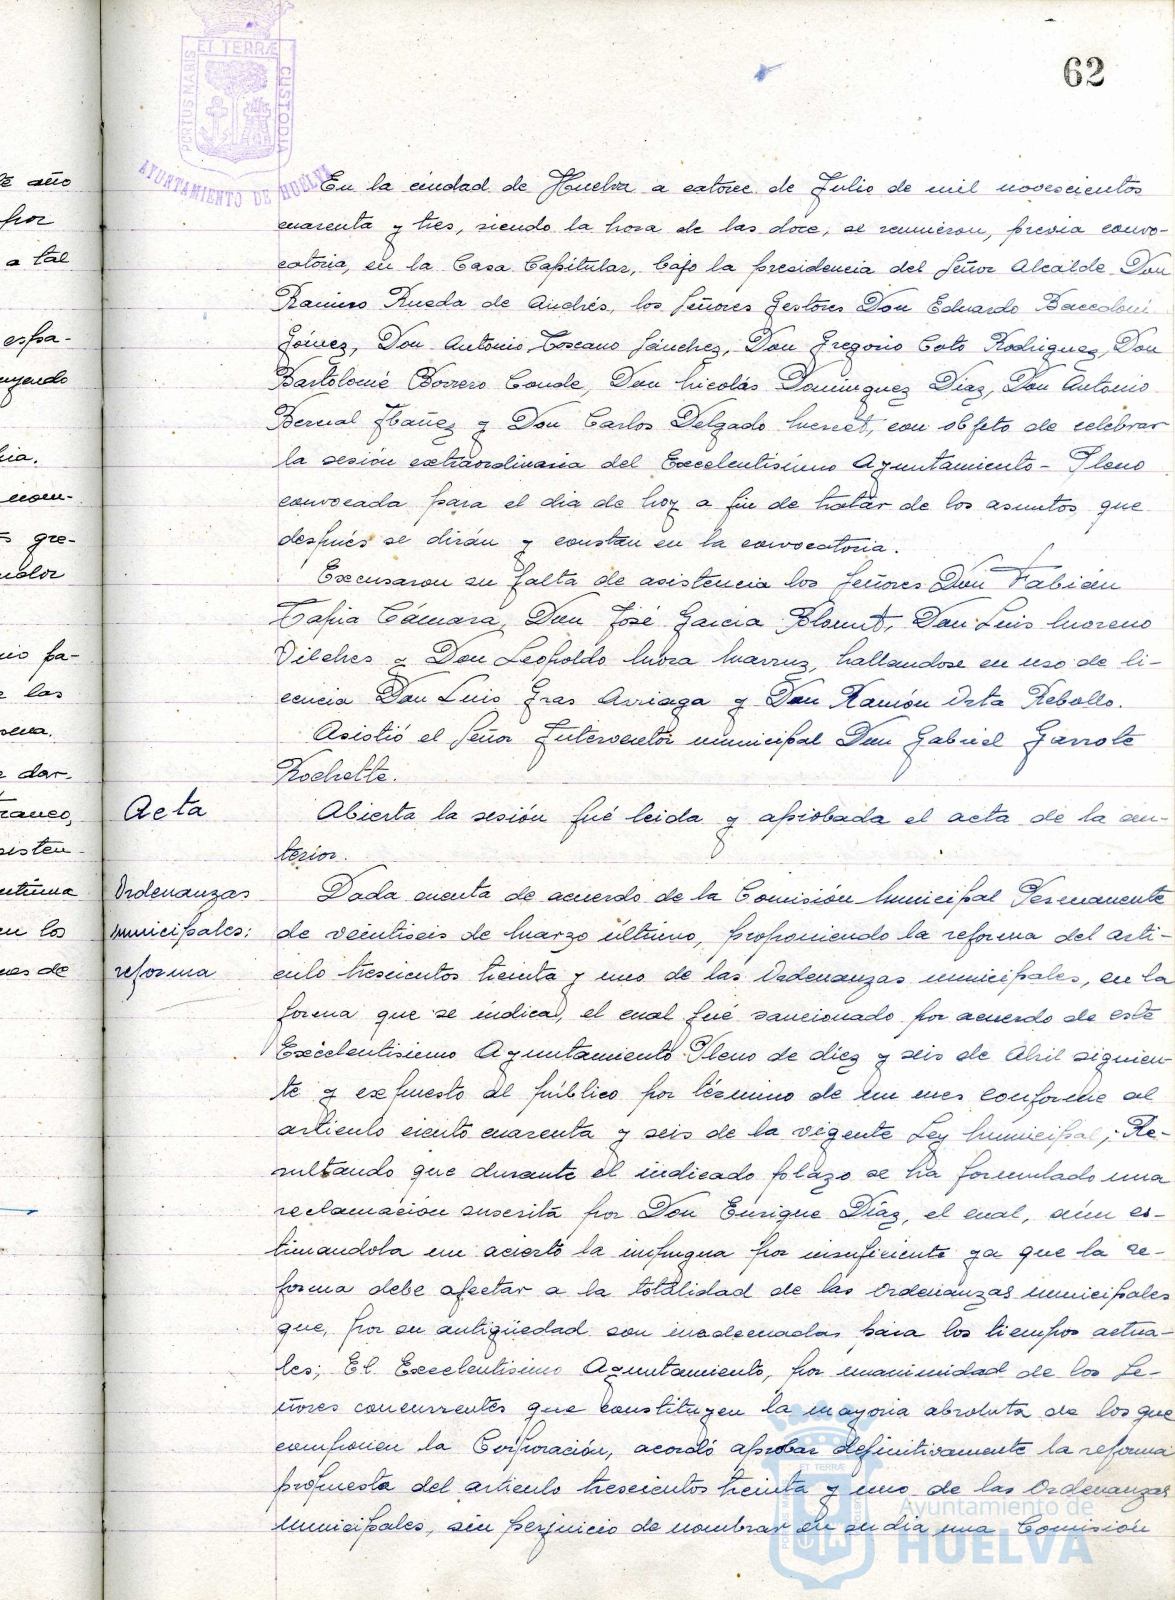 62
PORTUS MARIS ET TERRÆ CUSTODIA
AYUNTAMIENTO DE HUELVA
En la ciudad de Huelva a catorce de Julio de mil novescientos
cuarenta y tres, siendo la hora de las doce, se reunieron, previa convo-
catoria, en la Casa Capitular, bajo la presidencia del Señor Alcalde Don
Ramiro Rueda de Andrés, los Señores Gestores Don Eduardo Baccoloni
Gómez, Don Antonio Toscano Sánchez, Don Gregorio Coto Rodriguez, Don
Bartolomé Borrero Conde, Don Nicolás Dominguez Díaz, Don Antonio
Bernal Ibañez y Don Carlos Delgado Mercet, con objeto de celebrar
la sesión extraordinaria del Excelentisimo Ayuntamiento-Pleno
convocada para el dia de hoy a fin de tratar de los asuntos que
después se dirán y constan en la convocatoria.
Excusaron su falta de asistencia los Señores Don Fabián
Tapia Cámara, Don José Garcia Blount, Don Luis Moreno
Vilches y Don Leopoldo Mora Marruz, hallandose en uso de li-
cencia Don Luis Gras Arriaga y Don Ramón Orta Rebollo.
Asistió el Señor Interventor municipal Don Gabriel Garrote
Rochette.
Acta
Abierta la sesión fué leida y aprobada el acta de la an-
terior.
Ordenanzas
municipales:
reforma
Dada cuenta de acuerdo de la Comisión Municipal Permanente
de veintiseis de Marzo último, proponiendo la reforma del arti-
culo trescientos treinta y uno de las Ordenanzas municipales, en la
forma que se indica, el cual fué sancionado por acuerdo de este
Excelentisimo Ayuntamiento Pleno de diez y seis de Abril siguien-
te y expuesto al público por término de un mes conforme al
articulo ciento cuarenta y seis de la vigente Ley Municipal; Re-
sultando que durante el indicado plazo se ha formulado una
reclamación suscrita por Don Enrique Díaz, el cual, aún es-
timandola un acierto la impugna por insuficiente ya que la re-
forma debe afectar a la totalidad de las Ordenanzas municipales
que, por su antigüedad son inadecuadas para los tiempos actua-
les; El Excelentisimo Ayuntamiento, por unanimidad de los Se-
ñores concurrentes que constituyen la mayoria absoluta de los que
componen la Corporación, acordó aprobar definitivamente la reforma
propuesta del articulo trescientos treinta y uno de las Ordenanzas
Municipales, sin perjuicio de nombrar en su dia una Comisión
Ayuntamiento de
HUELVA
año
por
a tal
espa-
uyendo
nom-
gre-
pa-
las
dar-
los